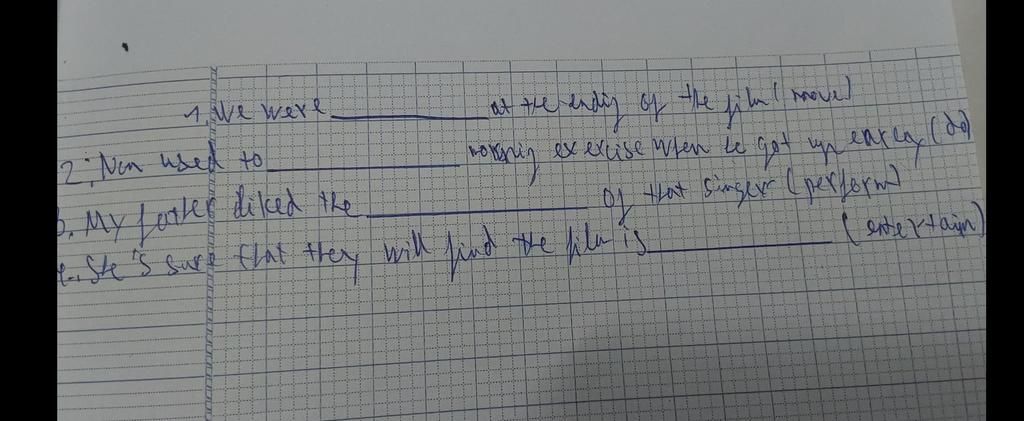 1. We were __________ at the ending of the film (move)
2. Nam used to __________ morning exercise when he got up earey (do)
3. My father liked the __________ of that singer (perform)
4. She's sure that they will find the film is __________ (entertain)